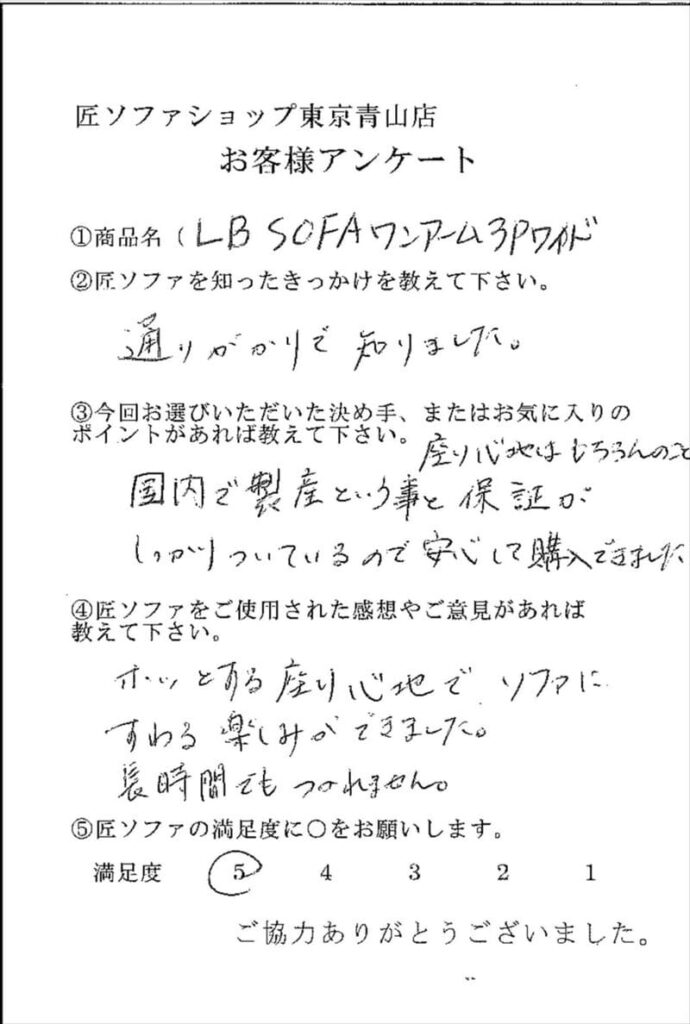 匠ソファショップ東京青山店
お客様アンケート
①商品名（LB SOFAワンアーム3Pワイド
②匠ソファを知ったきっかけを教えて下さい。
通りがかりで知りました。
③今回お選びいただいた決め手、またはお気に入りの
ポイントがあれば教えて下さい。
座り心地はもちろんのこと
国内で製産という事と保証が
しっかりついているので安心して購入できました
④匠ソファをご使用された感想やご意見があれば
教えて下さい。
ホッとする座り心地でソファに
すわる楽しみができました。
長時間でもつかれません。
⑤匠ソファの満足度に○をお願いします。
満足度 5 4 3 2 1
ご協力ありがとうございました。